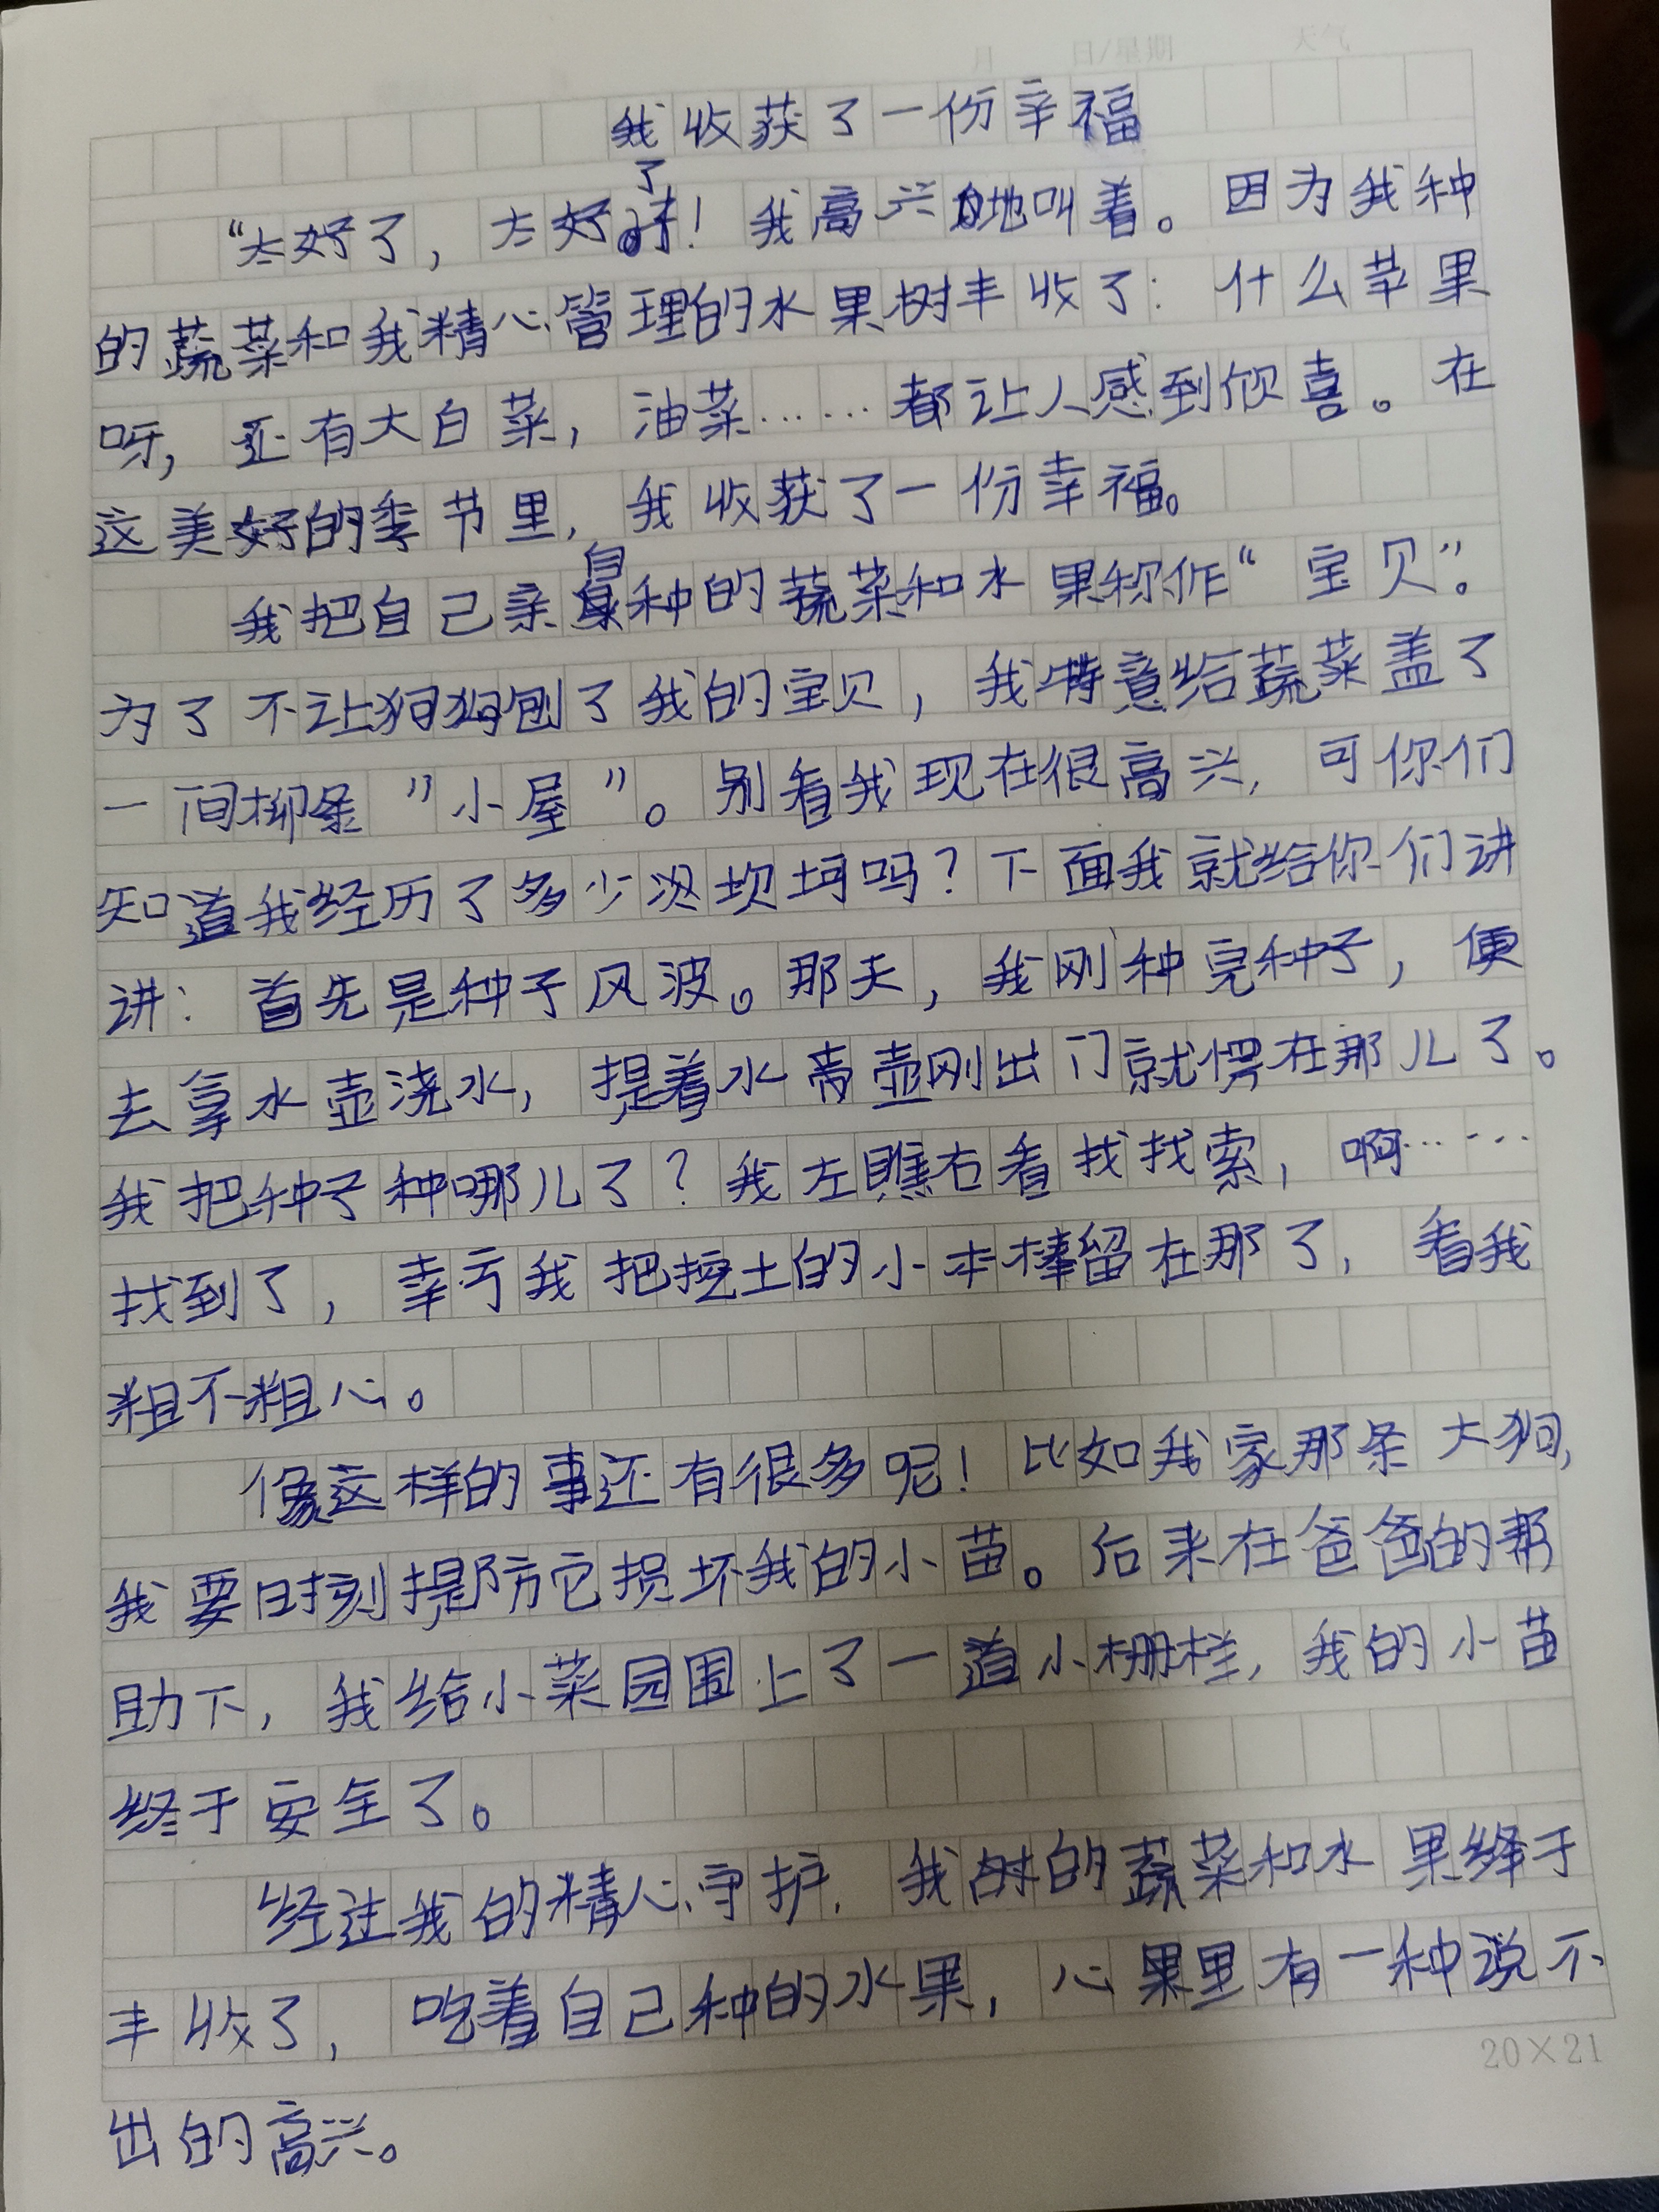 月 日/星期 天气
我收获了一份幸福
“太好了，太好了！我高兴地叫着。因为我种
的蔬菜和我精心管理的水果树丰收了：什么苹果
呀，还有大白菜，油菜……都让人感到欣喜。在
这美好的季节里，我收获了一份幸福。
我把自己亲自种的蔬菜和水果称作“宝贝”。
为了不让狗狗刨了我的宝贝，我特意给蔬菜盖了
一间柳条”小屋”。别看我现在很高兴，可你们
知道我经历了多少次坎坷吗？下面我就给你们讲
讲：首先是种子风波。那天，我刚种完种子，便
去拿水壶浇水，提着水壶刚出门就愣在那儿了。
我把种子种哪儿了？我左瞧右看找找索，啊……
找到了，幸亏我把挖土的小木棒留在那了，看我
粗不粗心。
像这样的事还有很多呢！比如我家那条大狗，
我要时刻提防它损坏我的小苗。后来在爸爸的帮
助下，我给小菜园围上了一道小栅栏，我的小苗
终于安全了。
经过我的精心守护，我的蔬菜和水果终于
丰收了，吃着自己种的水果，心里有一种说不
20×21
出的高兴。